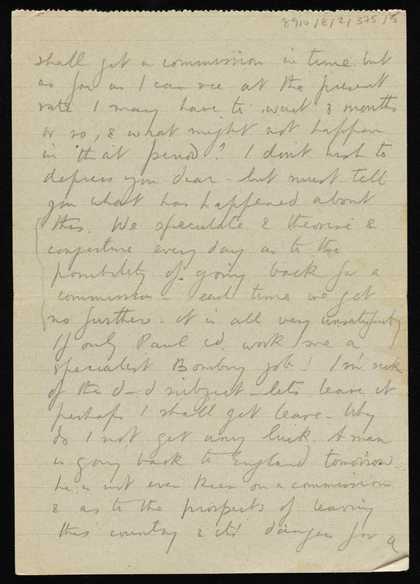 8910/8/2/375/5
shall get a commission in time but
as far as I can see at the present
rate I may have to wait 3 months
or so, & what might not happen
in that period? I don't wish to
depress you dear - but must tell
you what has happened about
this. We speculate & theorise &
conjecture every day as to the
possibility of going back for a
commission - each time we get
no further. It is all very unsatisfactory
If only Paul cd. work me a
specialist Bombing job! I'm sick
of the d--d subject - lets leave it
perhaps I shall get leave - Why
do I not get any luck. A man
is going back to England tomorrow
he is not even keen on a commission
& as to the prospects of leaving
this country & its' dangers for a